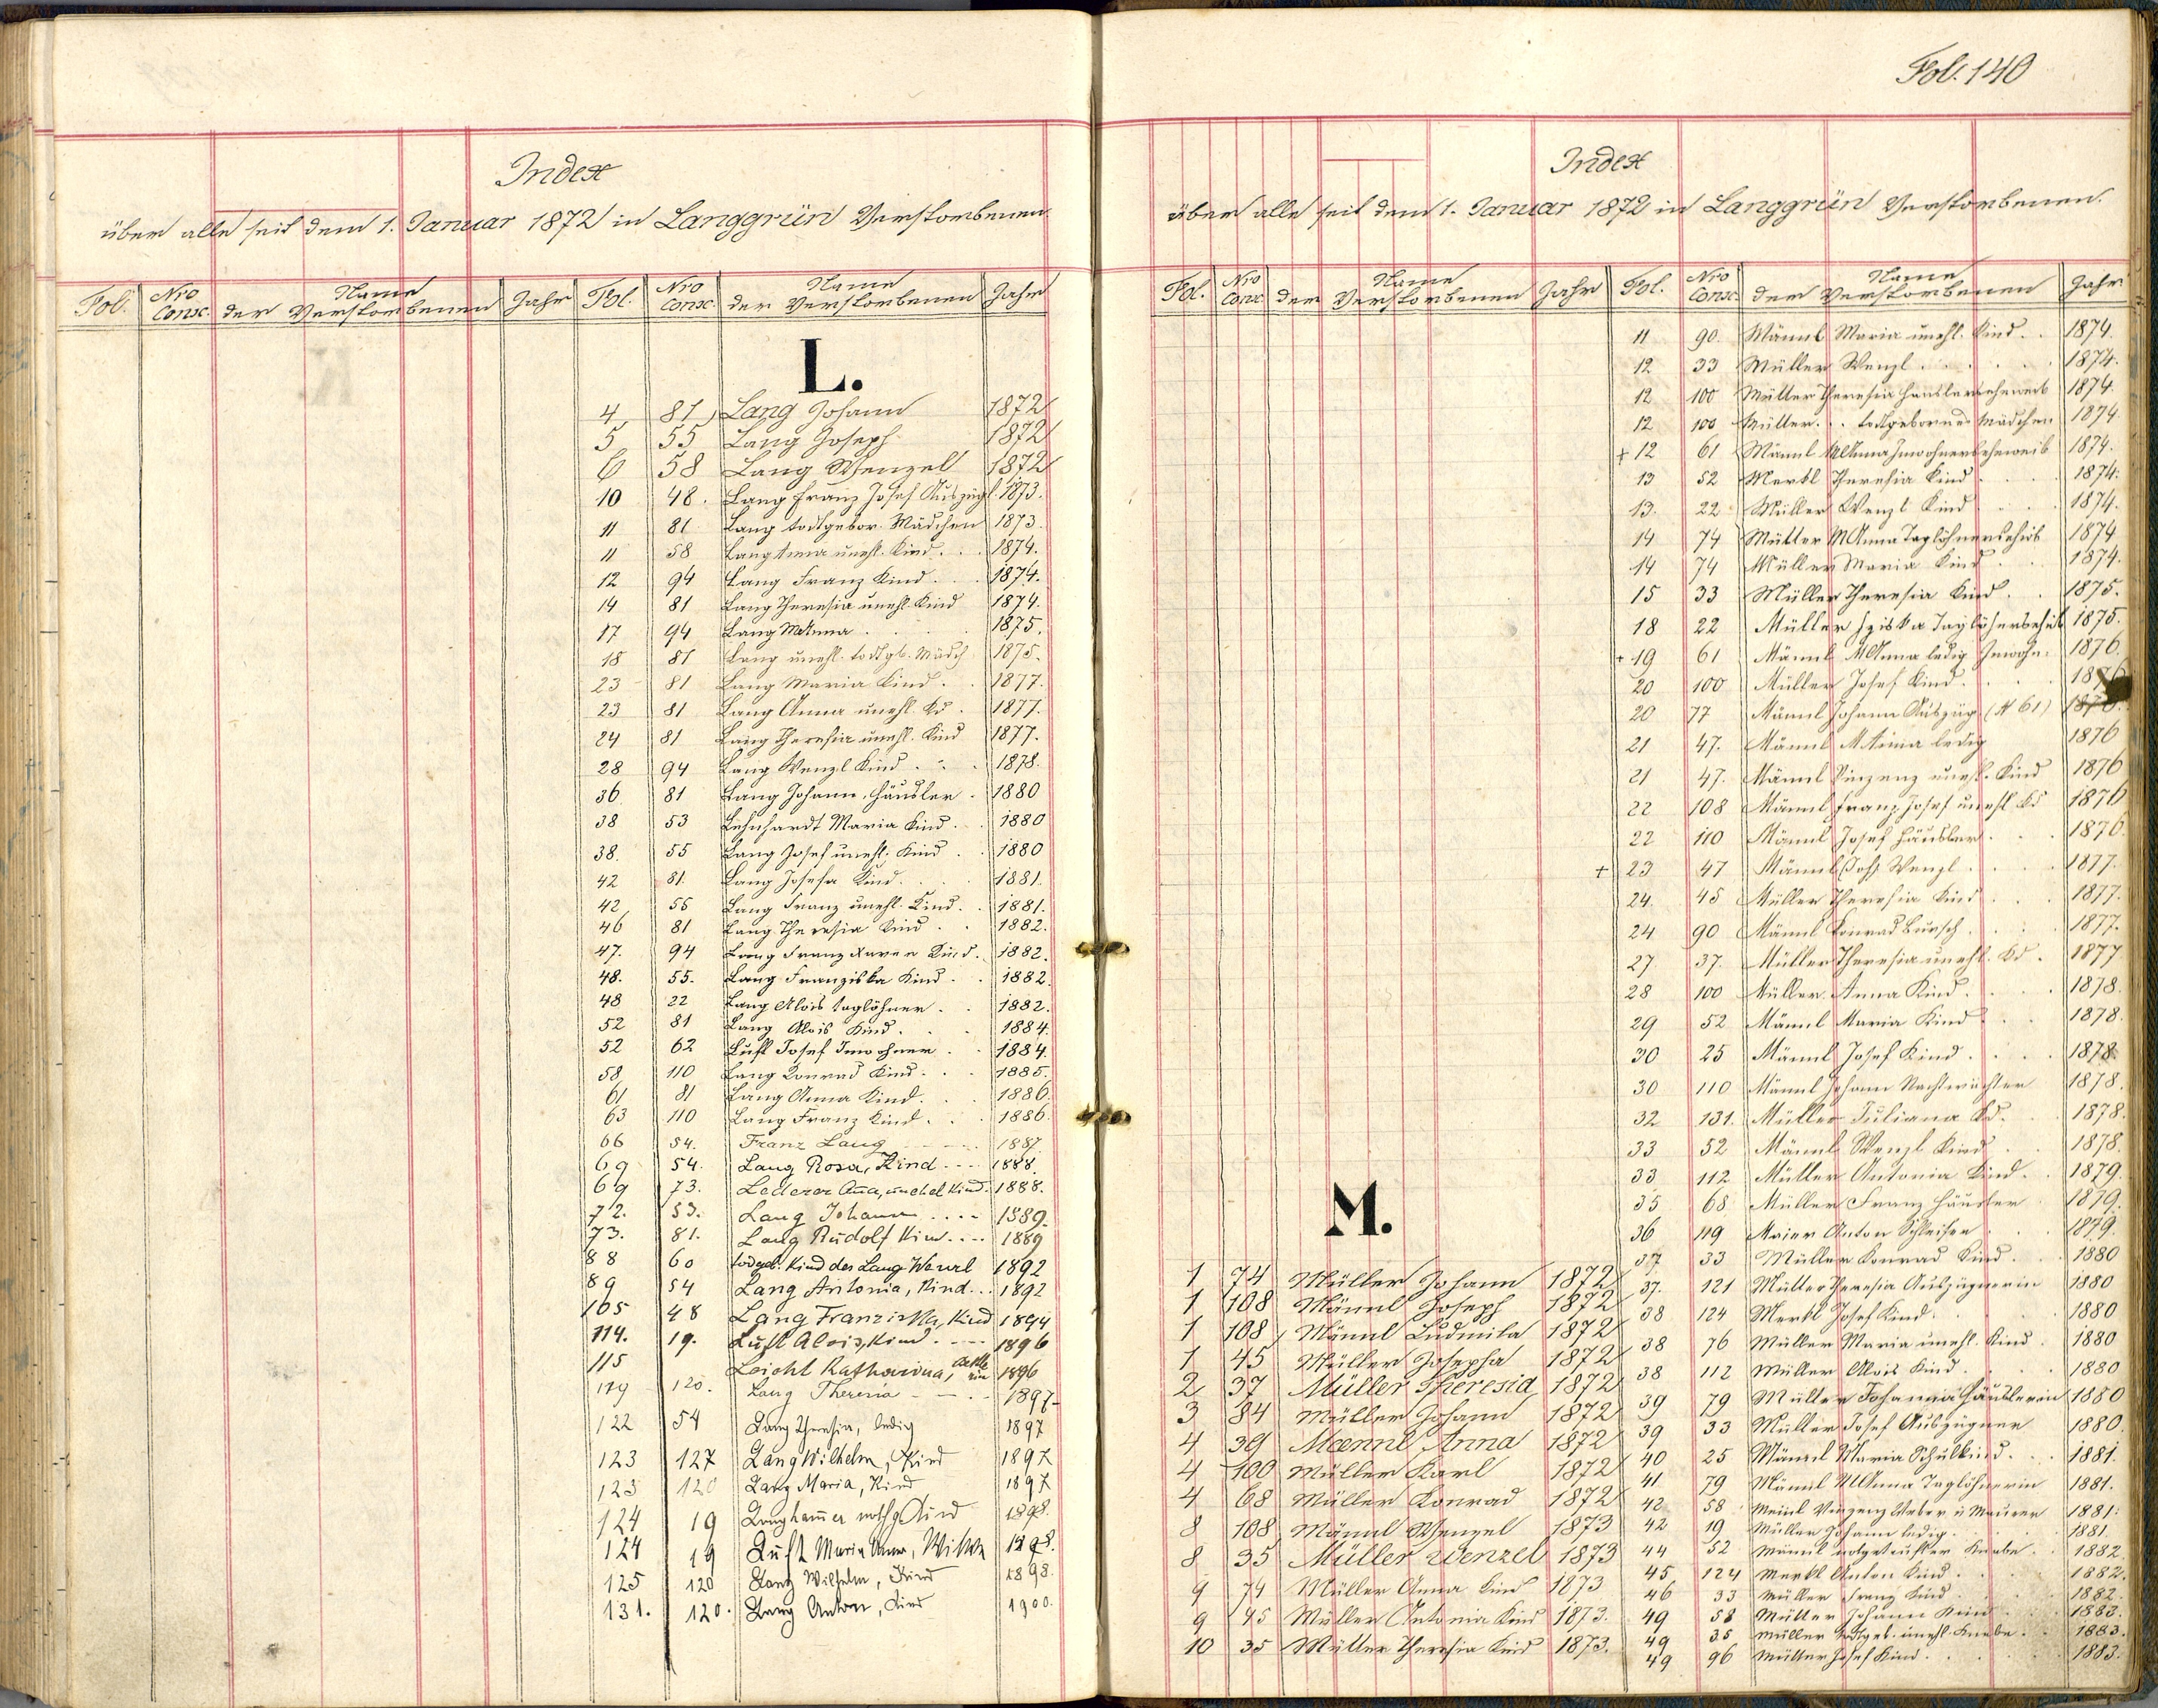 Fol. 140
Index
über alle seit dem 1. Januar 1872 in Langgrün Verstorbenen
Fol. Nro Consc. Name der Verstorbenen Jahr Fol. Nro Consc. Name der Verstorbenen Jahr
L.
4 81 Lang Johann 1872
5 55 Lang Joseph 1872
6 58 Lang Wenzel 1872
10 48. Lang Franz Josef Auszügl. 1873.
11 81 Lang todtgebor. Mädchen 1873.
11 58 Lang Anna unehl. Kind. . 1874.
12 94 Lang Franz Kind . . 1874.
14 81 Lang Theresia unehl. Kind 1874.
17 94 Lang MAnna . . . 1875.
18 81 Lang unehl. todtgb. Mädch 1875.
23 81 Lang Maria Kind . . 1877.
23 81 Lang Anna unehl. Kd. 1877.
24 81 Lang Theresia unehl. Kind 1877.
28 94 Lang Wenzl Kind . . . 1878.
36 81 Lang Johann, Häusler . 1880
38 53 Lehnhardt Maria Kind . . 1880
38. 55 Lang Josef unehl. Kind . . 1880
42 81. Lang Josefa Kind. . . 1881.
42 55 Lang Franz unehl. Kind. . 1881.
46 81 Lang Theresia Kind . . 1882.
47. 94 Lang Franz Xaver Kind. 1882.
48. 55. Lang Franziska Kind . . 1882.
48 22 Lang Alois taglöhner . . 1882.
52 81 Lang Alois Kind. . . 1884.
52 62 Luft Josef Inwohner . . 1884.
58 110 Lang Konrad Kind. . . 1885.
61 81 Lang Anna Kind. . . 1886.
63 110 Lang Franz Kind. . . 1886.
66 54. Franz Lang - - - 1887.
69 54. Lang Rosa, Kind - - - 1888.
69 73. Lederer Anna, unehel Kind. 1888.
72. 53. Lang Johann . . . . 1889.
73. 81. Lang Rudolf Kind . . . . 1889
88 60 todgeb. Kind des Lang Wenzl 1892
89 54 Lang Antonia, Kind . . . 1892
105 48 Lang Franziska, Kind 1894
114. 19. Luft Alois, Kind . - - - 1896
115 Leicht Katharina, 1896
119 120. Lang Theresia - - - . 1897.
122 54 Lang Theresia, ledig 1897
123 127 Lang Wilhelm, Kind 1897
123 120 Lang Maria, Kind 1897
124 19 Langhammer nothg. Kind 1898.
124 19 Luft Maria Anna, Witwe 1898.
125 120 Lang Wilhelm, Kind 1898.
131. 120. Lang Anton, Kind 1900.
Index
über alle seit dem 1. Januar 1872 in Langgrün Verstorbenen.
Fol. Nro Consc. Name der Verstorbenen Jahr Fol. Nro Consc. Name der Verstorbenen Jahr
M.
1 74 Müller Johann 1872
1 108 Männl Joseph 1872
1 108 Männl Ludmila 1872
1 45 Müller Josepha 1872
2 37 Müller Theresia 1872
3 84 Müller Johann 1872
4 39 Maennl Anna 1872
4 100 Müller Karl 1872
4 68 Müller Konrad 1872
8 108 Männl Wenzel 1873
8 35 Müller Wenzel 1873
9 74 Müller Anna Kind 1873
9 45 Müller Antonia Kind 1873.
10 35 Müller Theresia Kind 1873.
11 90. Männl Maria unehl. Kind . . 1874.
12 33 Müller Wenzl . . . . 1874.
12 100 Müller Theresia Häuslerseheweib 1874.
12 100 Müller . . todtgebornes Mädchen 1874
+ 12 61 Männl MAnna Inwohnerseheweib 1874.
13 52 Merkl Theresia Kind . . . 1874.
13. 22 Müller Wenzl Kind . . . 1874.
14 74 Müller MAnna Taglöhnersehwb 1874
14 74 Müller Maria Kind . . 1874.
15 33 Müller Theresia Kind. . . 1875.
18 22 Müller Fziska Taglöhnersehwb 1875.
+ 19 61 Männl MAnna ledig Inwohn. 1876.
20 100 Müller Josef Kind. . . . 1876
20 77 Männl Johann Auszüg (N 61) 1876.
21 47. Männl MAnna ledig 1876
21 47. Männl Vinzenz unehl. Kind 1876
22 108 Männl Franz Josef unehl Kd 1876
22 110 Männl Josef Häusler . . . 1876.
+ 23 47 Männl (Joh) Wenzl . . . 1877.
24. 45 Müller Theresia Kind . . . 1877.
24 90 Männl Konrad Bursch . . . 1877.
27 37. Müller Theresia unehl. Kd. 1877
28 100 Müller Anna Kind. . . . 1878.
29 52 Männl Maria Kind . . . 1878.
30 25 Männl Josef Kind . . . . 1878.
30 110 Männl Johann Nachtwächter 1878.
32 131. Müller Juliana Kd. . . 1878.
33 52 Männl Wenzl Kind . . 1878.
33 112 Müller Antonia Kind. . . 1879.
35 68 Müller Franz Häusler 1879.
36 119 Maier Anton Schleifer . 1879.
37 33 Müller Konrad Kind. . . 1880
37. 121 Müller Theresia Auszügnerin 1880
38 124 Merkl Josef Kind. . . . 1880
38 76 Müller Maria unehl. Kind . 1880
38 112 Müller Alois Kind. . . . 1880
39 79 Müller Johanna Häuslerin 1880
39 33 Müller Josef Auszügner 1880.
40 25 Männl Maria Schulkind. . . 1881.
41 79 Männl MAnna Taglöhnerin 1881.
42 58 Meinl Vinzenz Weber u Maurer 1881.
42 19 Müller Johann ledig. . . . 1881.
44 52 Männl notgetaufter Knabe. . 1882
45 124 Merkl Anton Kind . . . 1882.
46 33 Müller Franz Kind . . . 1882.
49 58 Müller Johann Kind . . 1883.
49 35 Müller todtgeb. unehl. Knabe. . 1883.
49 96 Müller Josef Kind. . . . 1883.